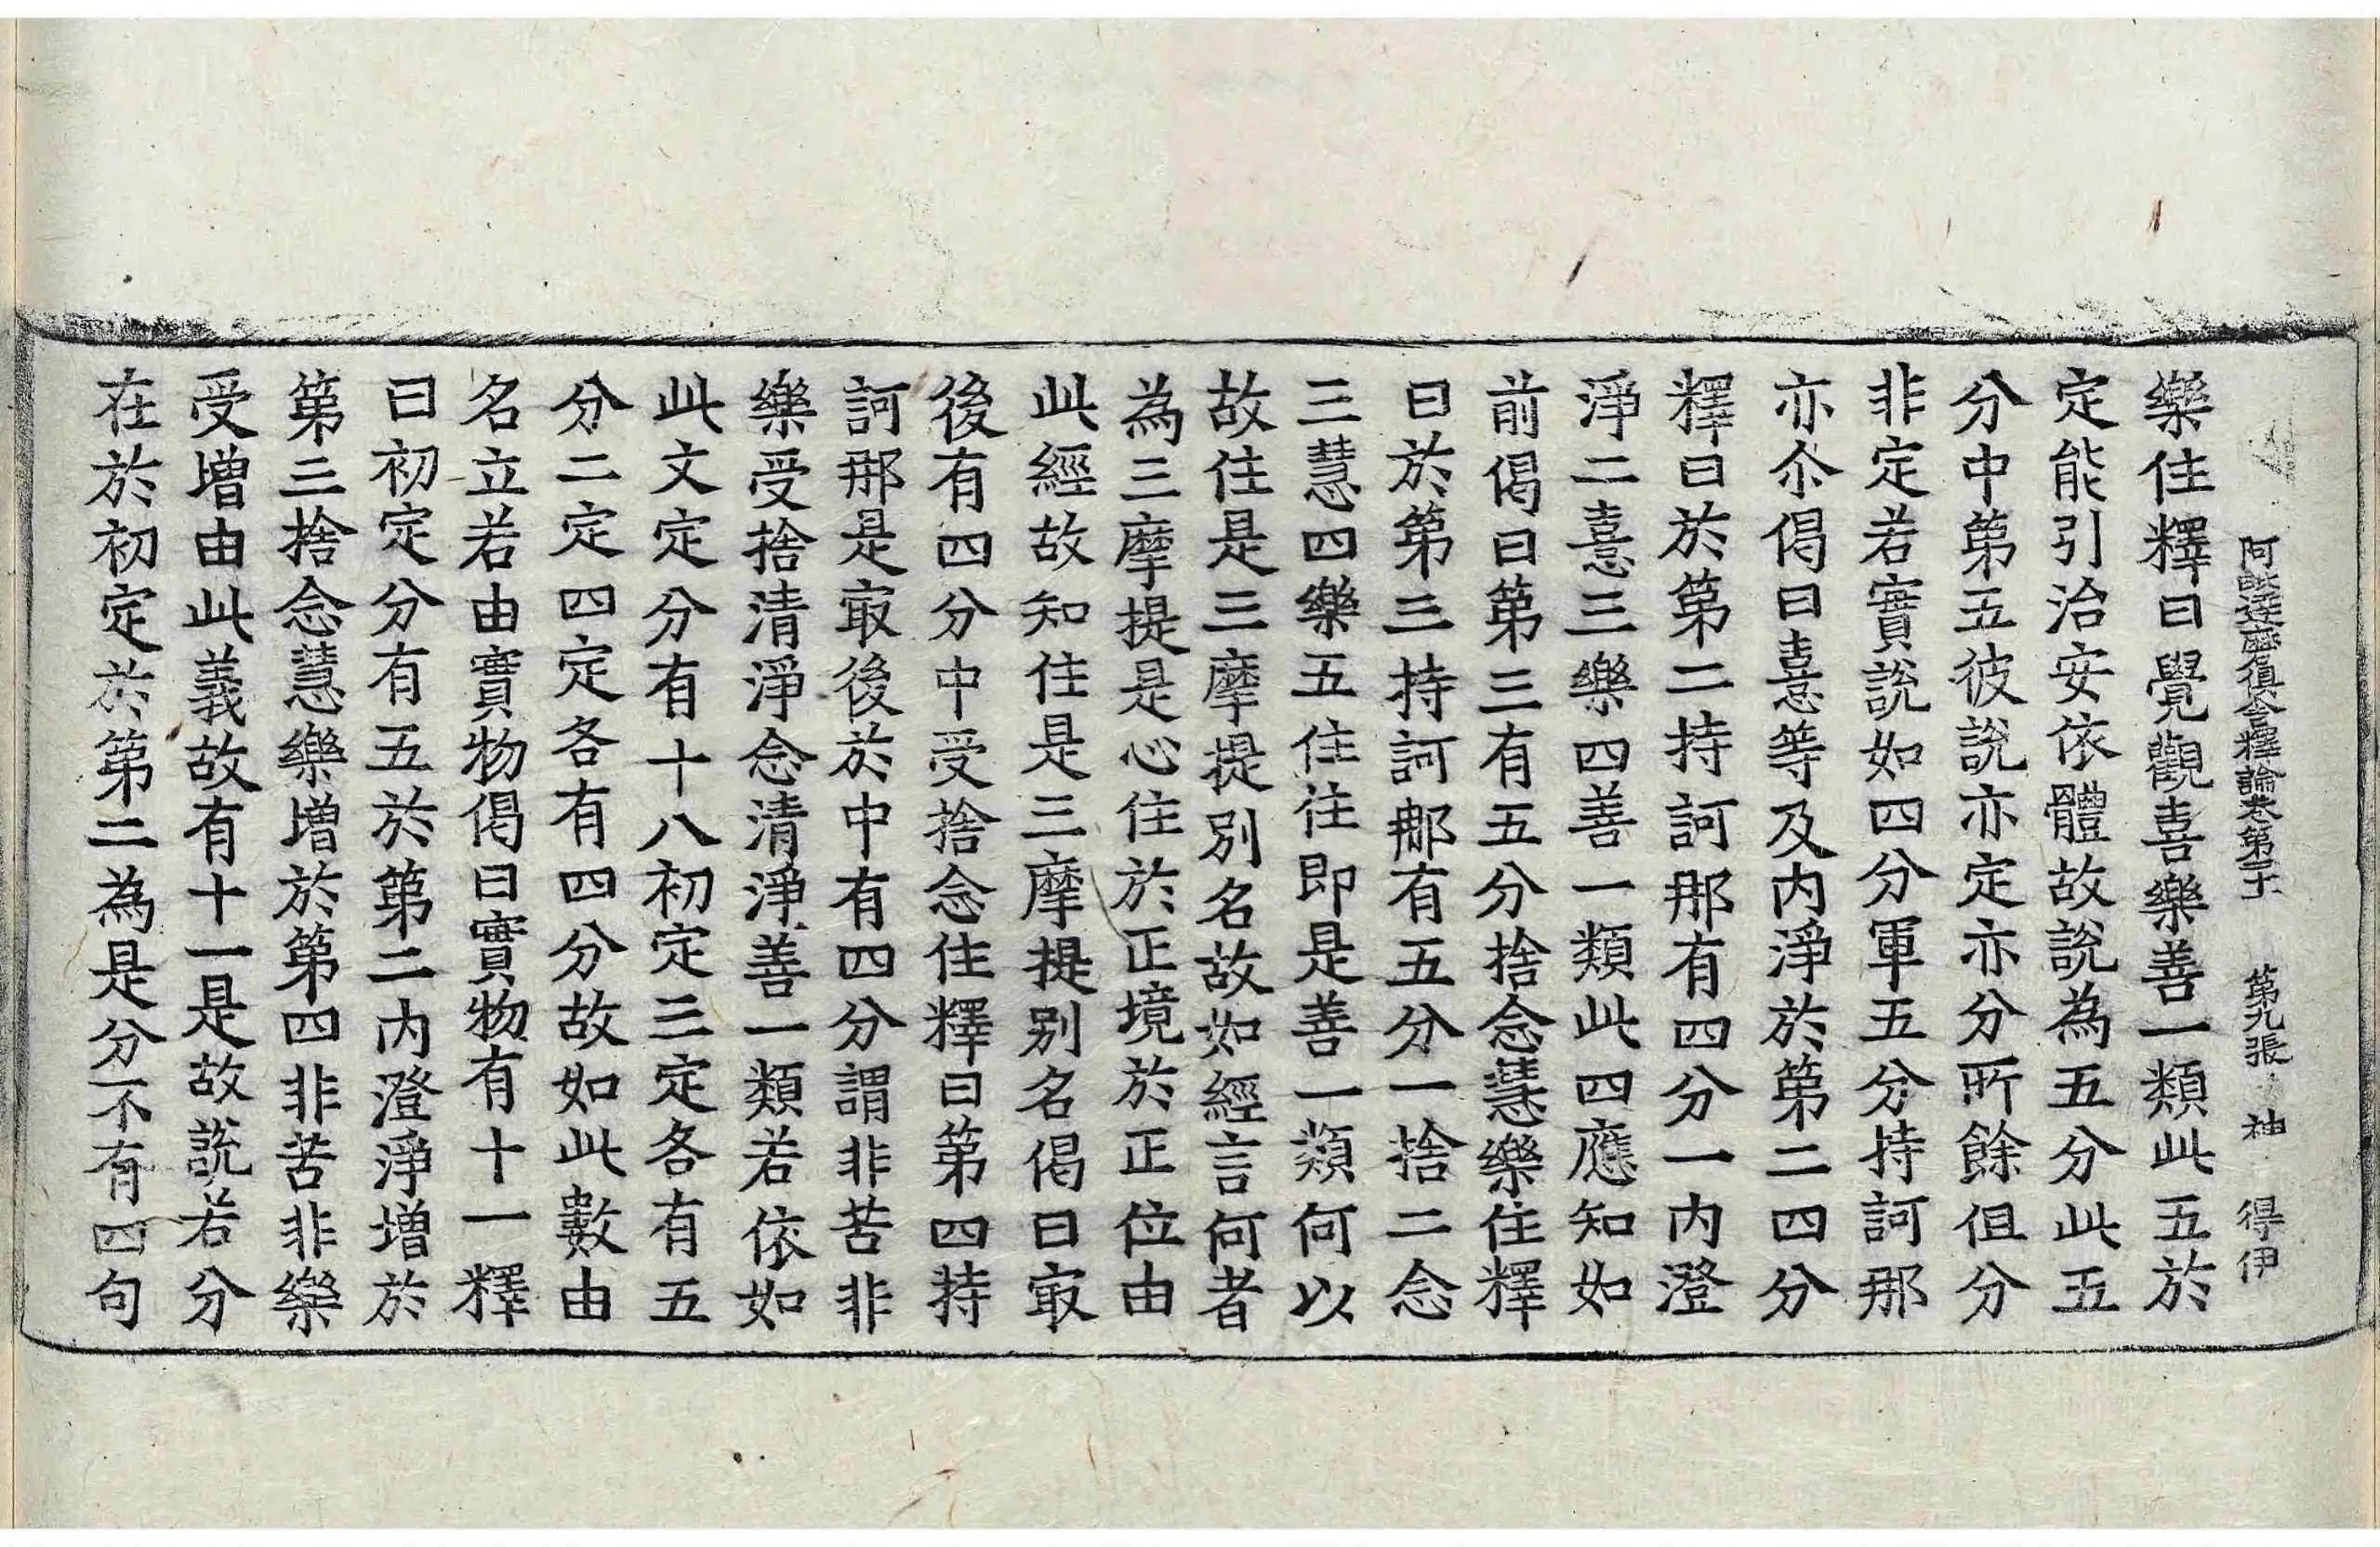 阿毗達磨俱舍釋論卷第二十一 第九張 神 得伊
樂住釋曰覺觀喜樂善一類此五於
定能引治安依體故說為五分此五
分中第五彼說亦定亦分所餘但分
非定若實說如四分軍五分持訶那
亦尒偈曰憙等及內淨於第二四分
釋曰於第二持訶那有四分一內澄
淨二憙三樂四善一類此四應知如
前偈曰第三有五分捨念慧樂住釋
曰於第三持訶那有五分一捨二念
三慧四樂五住住即是善一類何以
故住是三摩提別名故如經言何者
為三摩提是心住於正境於正位由
此經故知住是三摩提別名偈曰冣
後有四分中受捨念住釋曰第四持
訶那是冣後於中有四分謂非苦非
樂受捨清淨念清淨善一類若依如
此文定分有十八初定三定各有五
分二定四定各有四分故如此數由
名立若由實物偈曰實物有十一釋
曰初定分有五於第二內澄淨增於
第三捨念慧樂增於第四非苦非樂
受增由此義故有十一是故說若分
在於初定於第二為是分不有四句